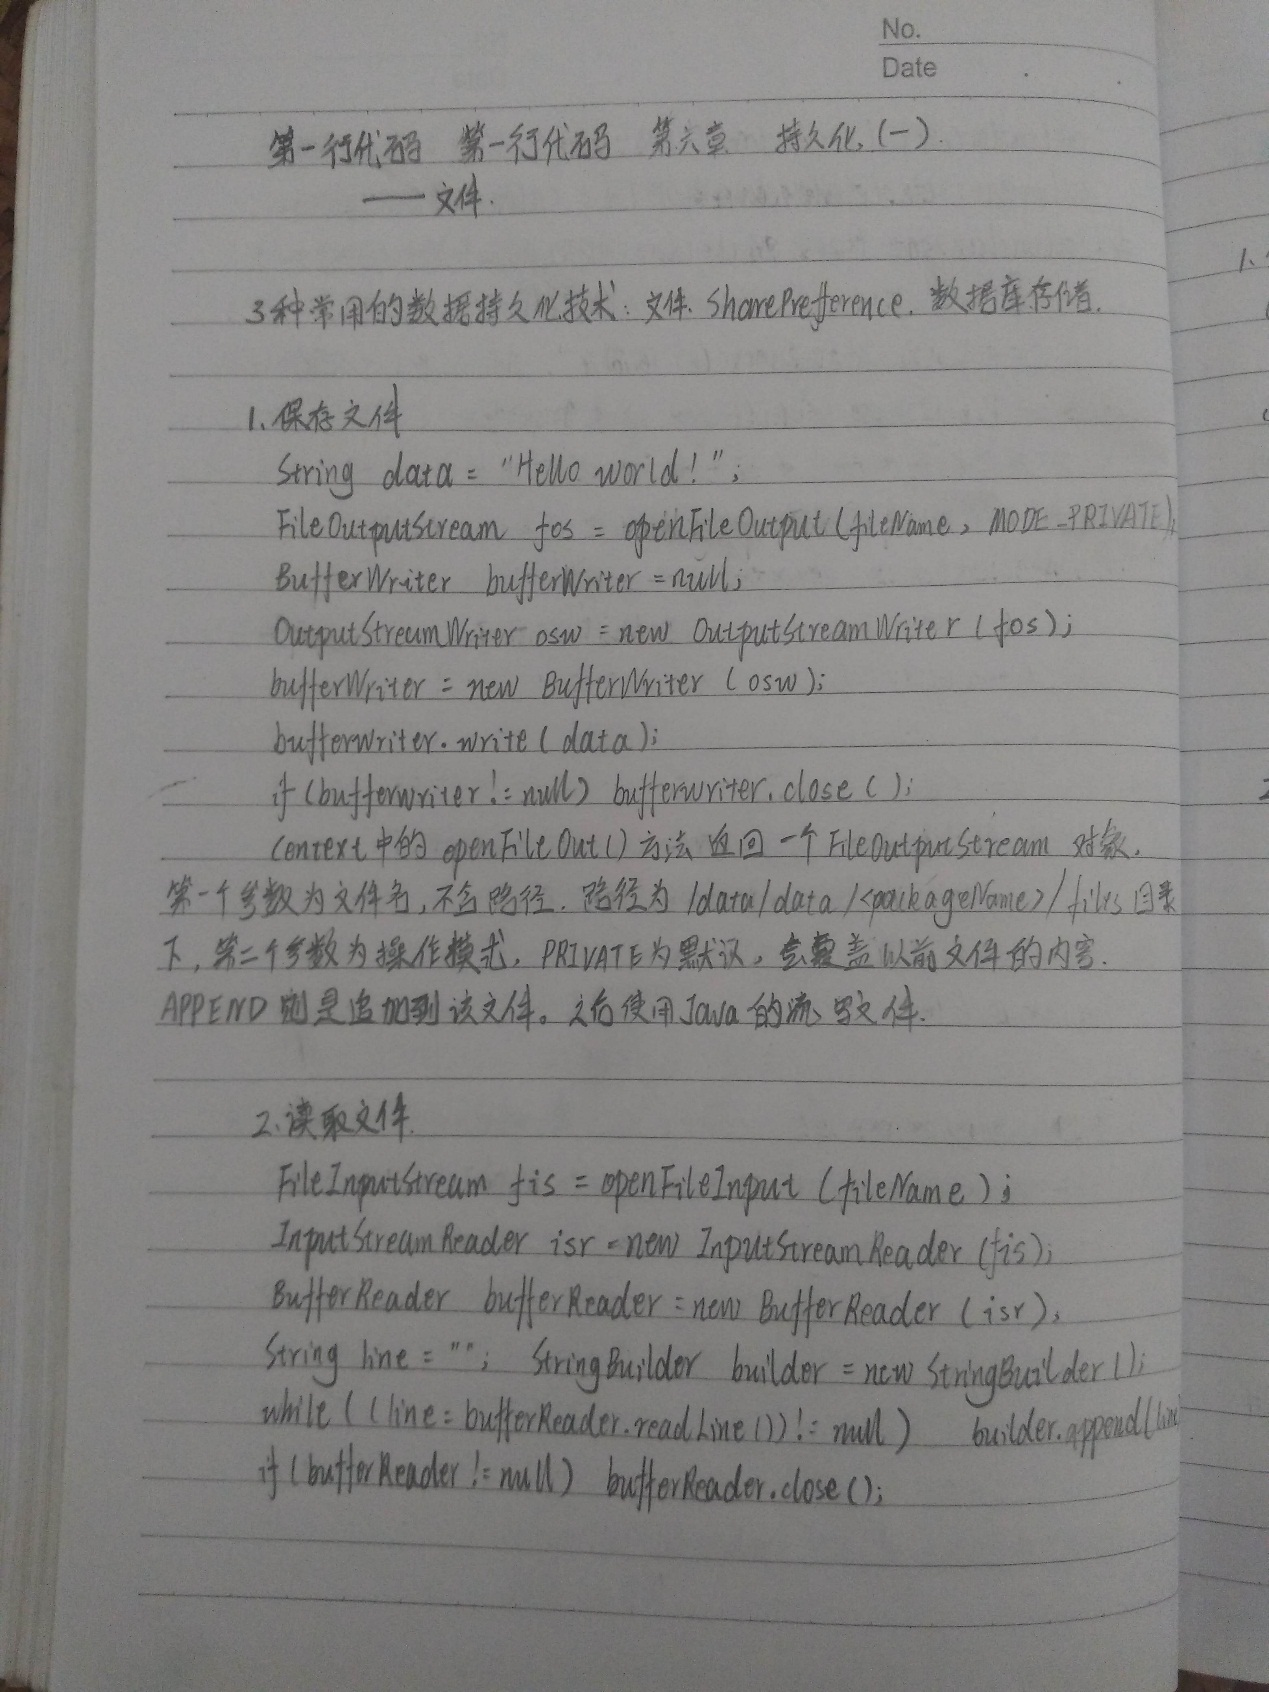 No.
Date
第一行代码 第一行代码 第六章 持久化(一).
——文件.
3种常用的数据持久化技术: 文件. SharePrefference. 数据库存储.
1、保存文件
String data = "Hello world!";
FileOutputStream fos = openFileOutput(fileName, MODE_PRIVATE);
BufferWriter bufferWriter = null;
OutputStreamWriter osw = new OutputStreamWriter(fos);
bufferWriter = new BufferWriter (osw);
bufferwriter.write(data);
if(bufferwriter!=null) bufferwriter.close();
Context中的 openFileOut()方法返回一个FileOutputStream 对象.
第一个参数为文件名,不含路径. 路径为 /data/data/<packageName>/files 目录
下, 第二个参数为操作模式, PRIVATE为默认, 会覆盖以前文件的内容.
APPEND 则是追加到该文件。之后使用Java的流写文件.
2、读取文件.
FileInputStream fis = openFileInput (fileName);
InputStreamReader isr = new InputStreamReader(fis);
BufferReader bufferReader = new BufferReader (isr);
String line = ""; StringBuilder builder = new StringBuilder();
while((line = bufferReader.readLine())!= null) builder.append(line
if(bufferReader != null) bufferReader.close();
1、